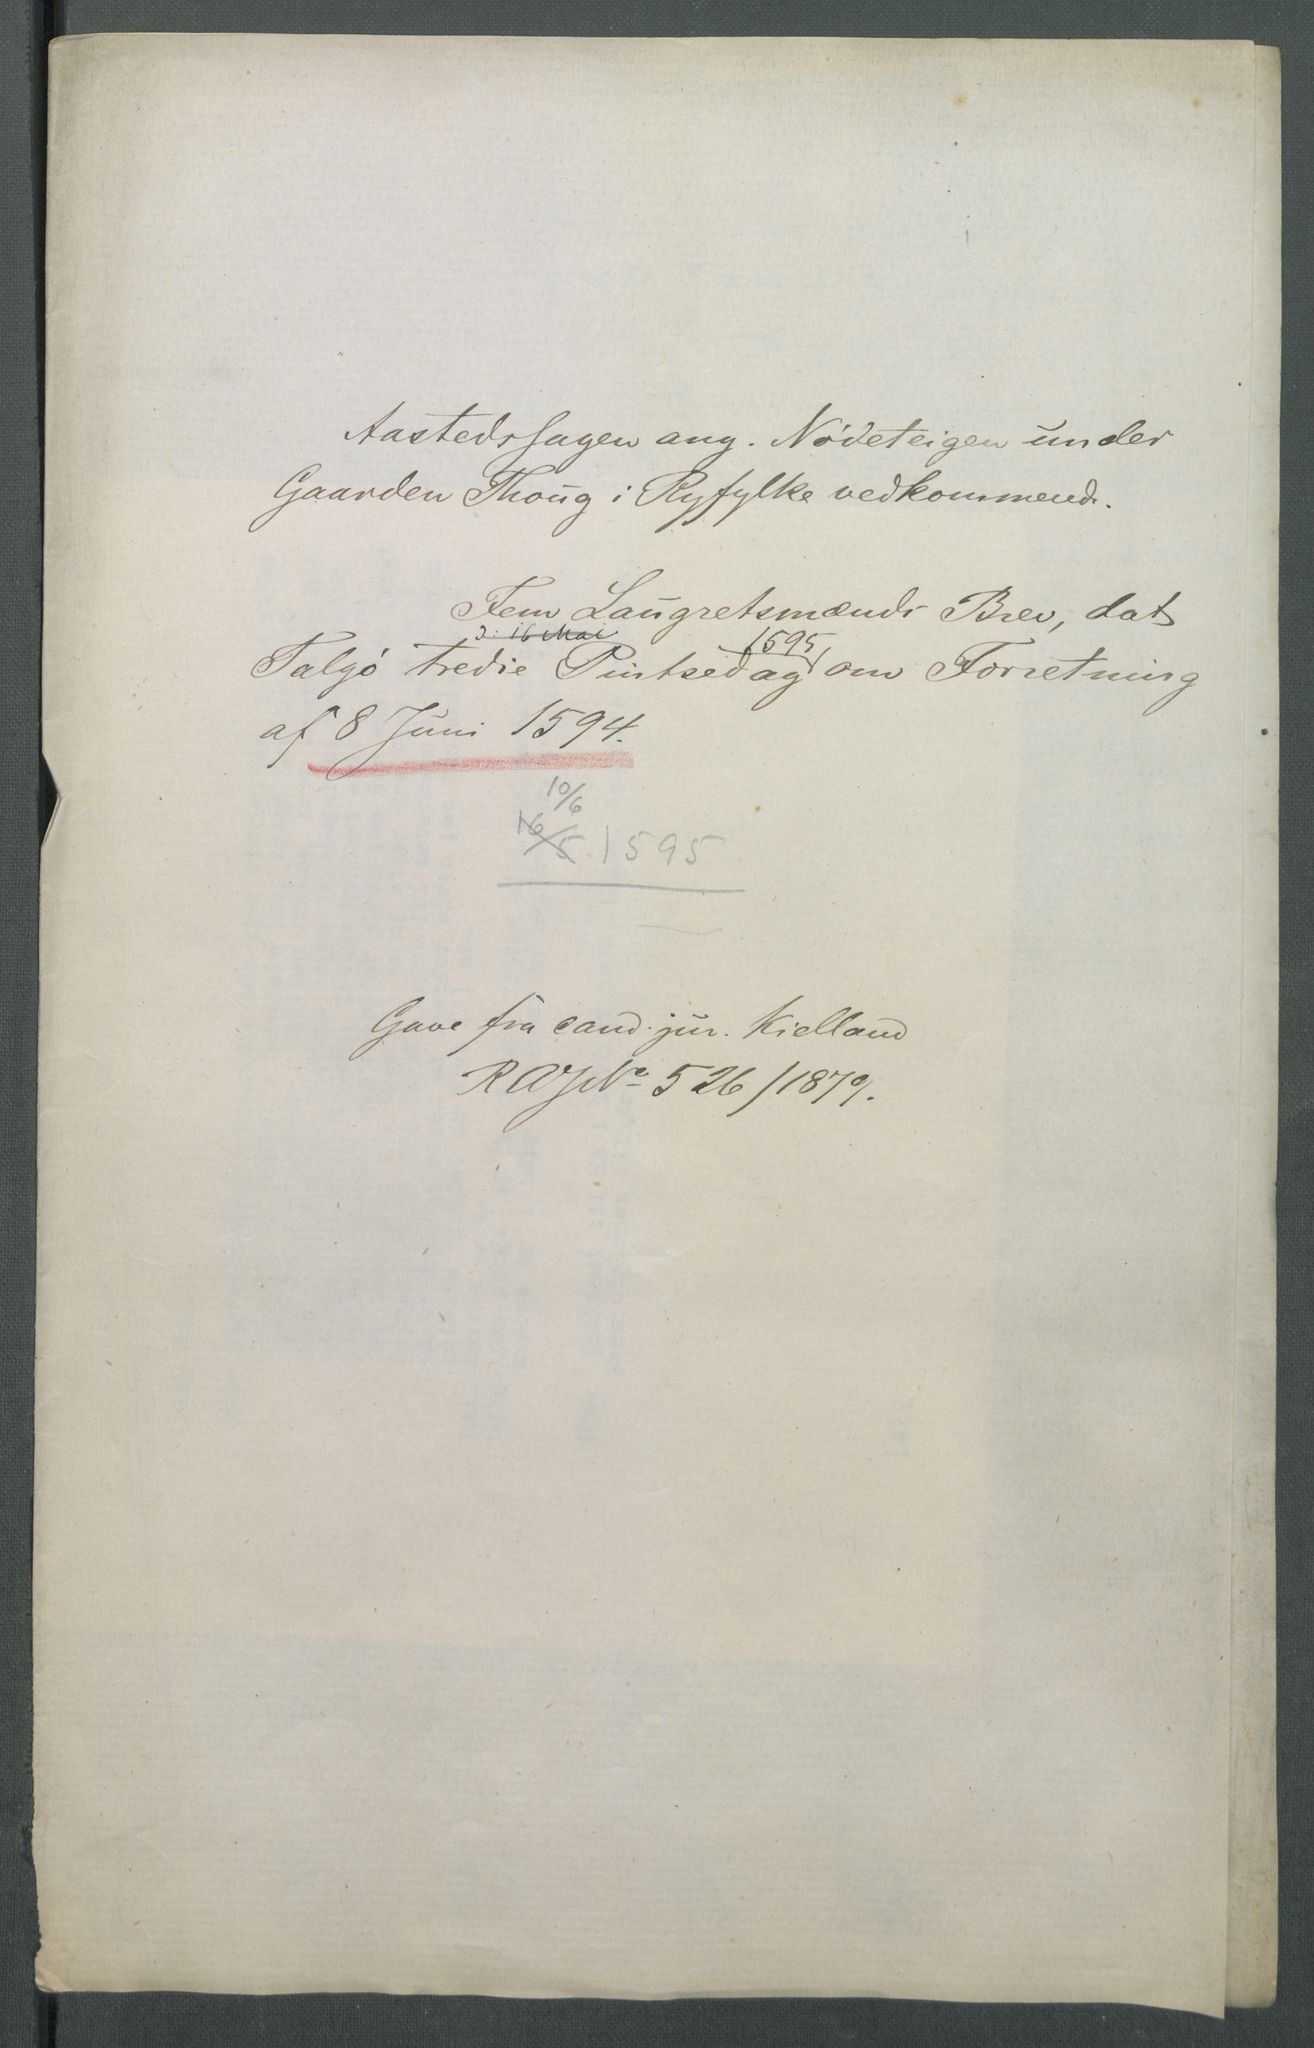 Aastedssagen ang. Nödeteigen under
Gaarden Thoug i Ryfylke vedkommende.
Fem Laugretsmænds Brev, dat
ɔ: 16 Mai 1595
Talgö tredie Pintsedag om Forretning
af 8 Juni 1594.
10/6
16/5 1595
Gave fra cand. jur. Kielland
RAJNo 526/1879.